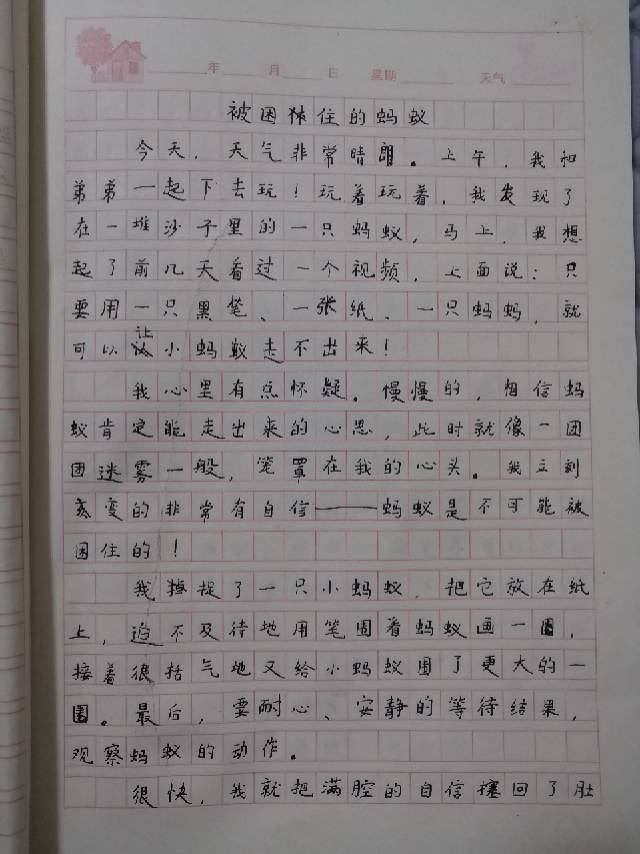 年 月 日 星期 天气
被困住的蚂蚁
今天，天气非常晴朗。上午，我和
弟弟一起下去玩！玩着玩着，我发现了
在一堆沙子里的一只蚂蚁，马上，我想
起了前几天看过一个视频，上面说：只
要用一只黑笔、一张纸、一只蚂蚂，就
可以让小蚂蚁走不出来！
我心里有点怀疑。慢慢的，相信蚂
蚁肯定能走出来的心思，此时就像一团
团迷雾一般，笼罩在我的心头。我立刻
变的非常有自信——蚂蚁是不可能被
困住的！
我捉了一只小蚂蚁，把它放在纸
上，迫不及待地用笔围着蚂蚁画一圈，
接着很括气地又给小蚂蚁围了更大的一
圈。最后，要耐心、安静的等待结果，
观察蚂蚁的动作。
很快，我就把满腔的自信攘回了肚